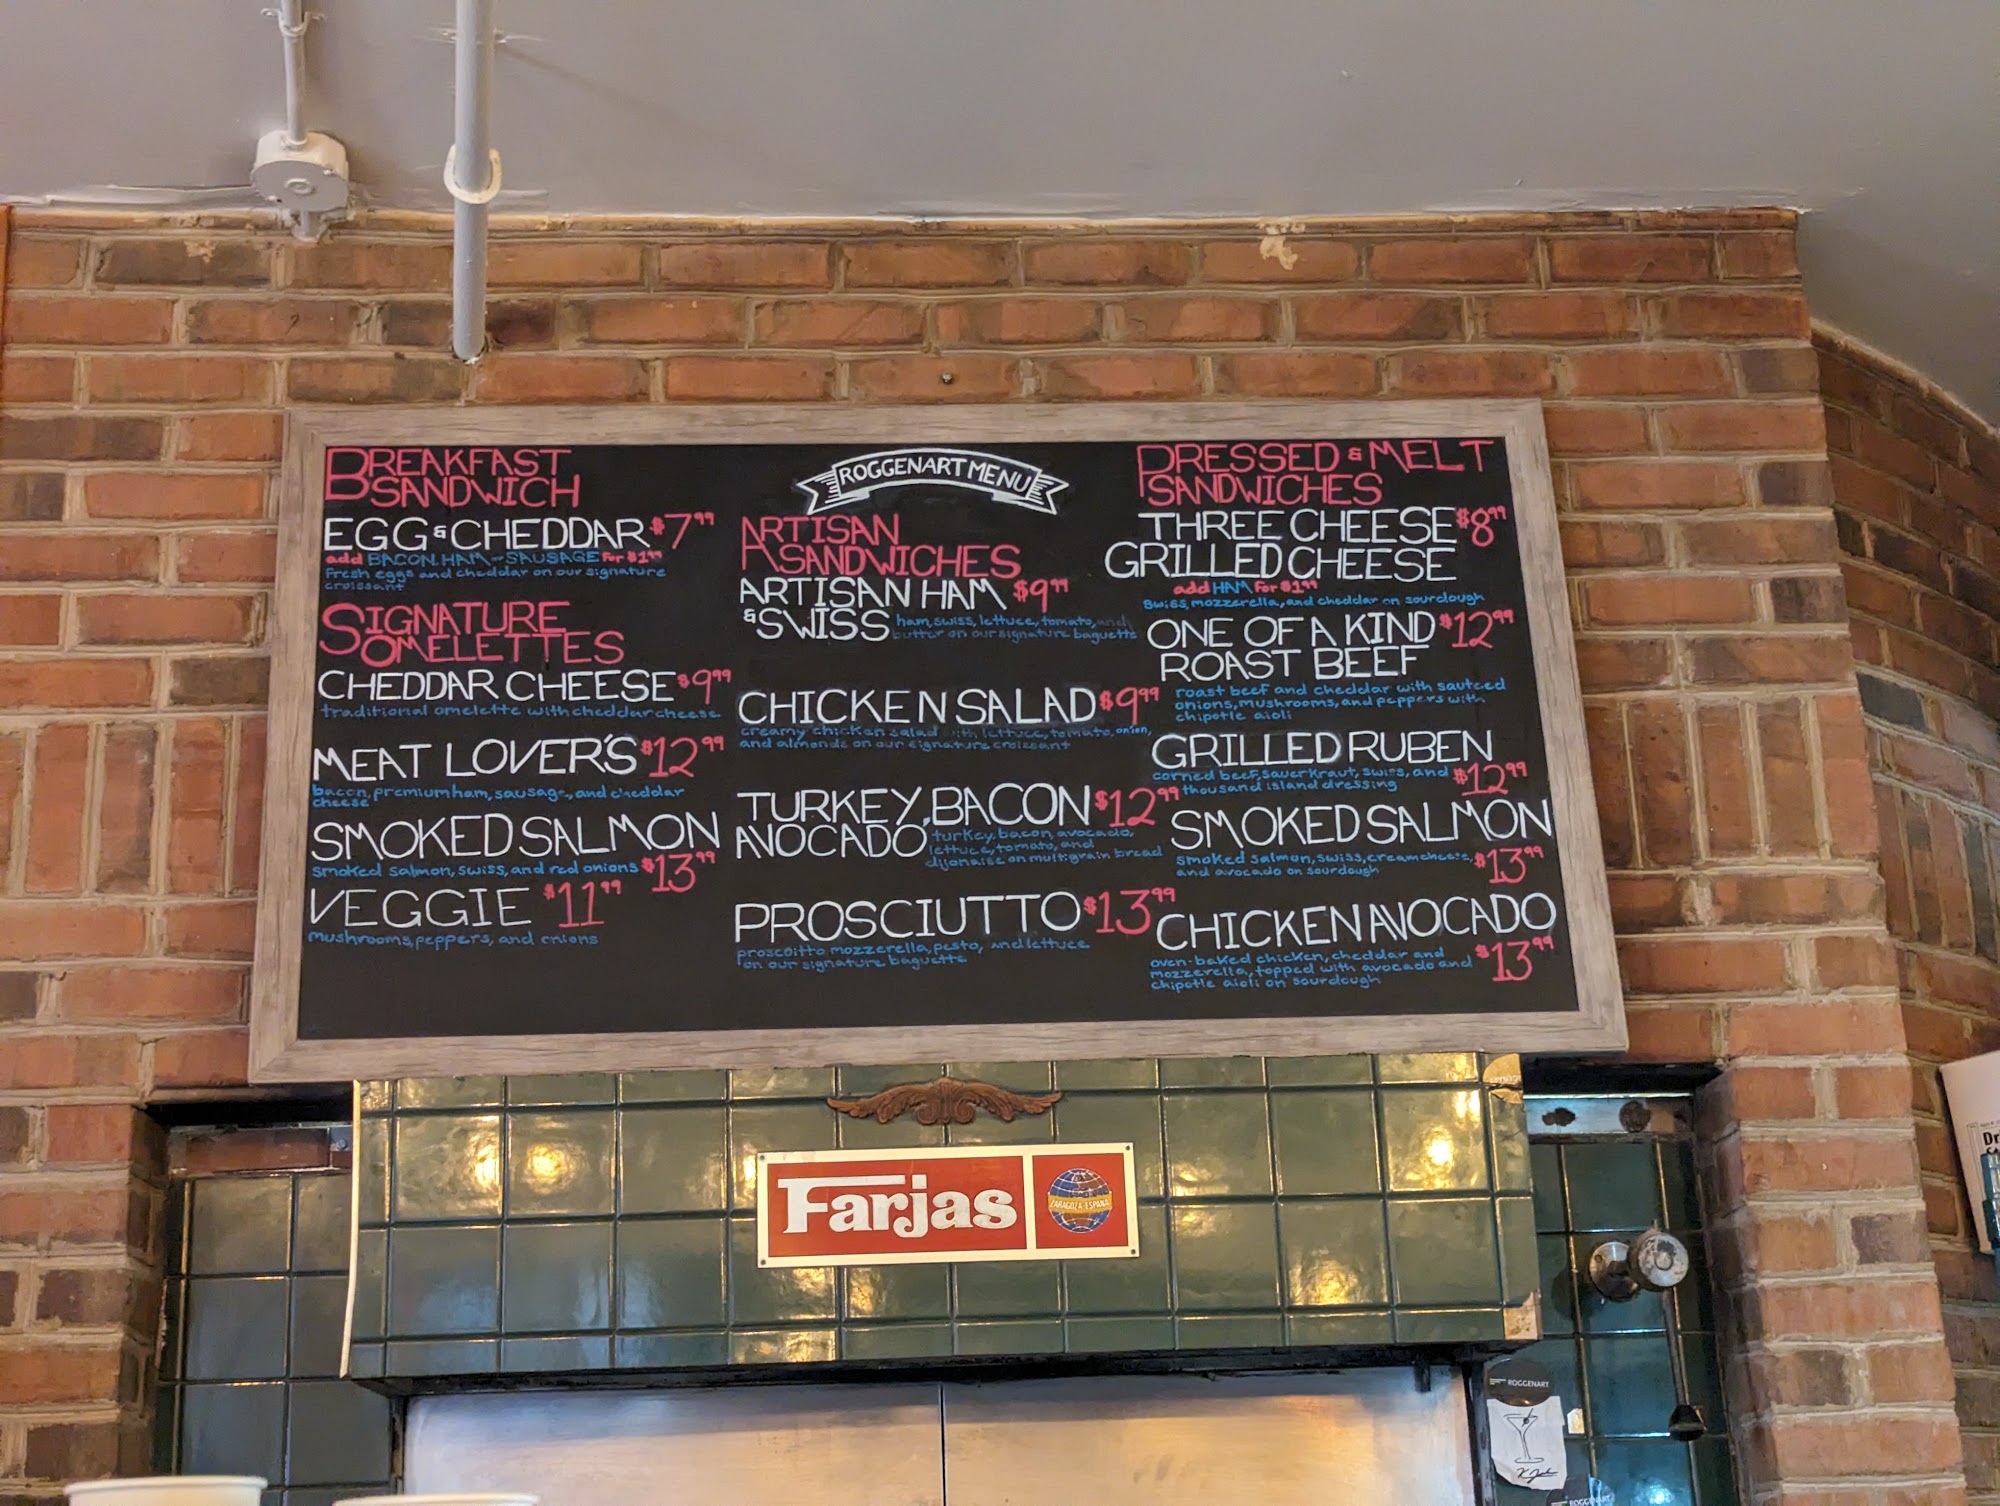 ROGGENART MENU
BREAKFAST
SANDWICH
EGG & CHEDDAR $7.99
add BACON, HAM or SAUSAGE for $1.99
Fresh eggs and cheddar on our signature
croissant
SIGNATURE
OMELETTES
CHEDDAR CHEESE $9.99
traditional omelette with cheddar cheese
MEAT LOVER'S $12.99
bacon, premium ham, sausage, and cheddar
cheese
SMOKED SALMON
smoked salmon, swiss, and red onions $13.99
VEGGIE $11.99
mushrooms, peppers, and onions
ARTISAN
SANDWICHES
ARTISAN HAM $9.99
& SWISS ham, swiss, lettuce, tomato, and
butter on our signature baguette
CHICKEN SALAD $9.99
creamy chicken salad with lettuce, tomato, onion,
and almonds on our signature croissant
TURKEY, BACON $12.99
AVOCADO turkey, bacon, avocado,
lettuce, tomato, and
dijonaise on multigrain bread
PROSCIUTTO $13.99
proscoitto mozzerella, pesto, and lettuce
on our signature baguette
PRESSED & MELT
SANDWICHES
THREE CHEESE $8.99
GRILLED CHEESE
add HAM for $1.99
Swiss, mozzerella, and cheddar on sourdough
ONE OF A KIND $12.99
ROAST BEEF
roast beef and cheddar with sauteed
onions, mushrooms, and peppers with
chipotle aioli
GRILLED RUBEN
corned beef, sauerkraut, swiss, and $12.99
thousand island dressing
SMOKED SALMON
smoked salmon, swiss, cream cheese, $13.99
and avocado on sourdough
CHICKEN AVOCADO
oven-baked chicken, cheddar and $13.99
mozzerella, topped with avocado and
chipotle aioli on sourdough
Farjas
ZARAGOZA-ESPAÑA
ROGGENART
ROGGENART